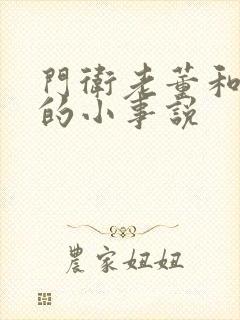 門衛老董和
的小事説
農家妞妞